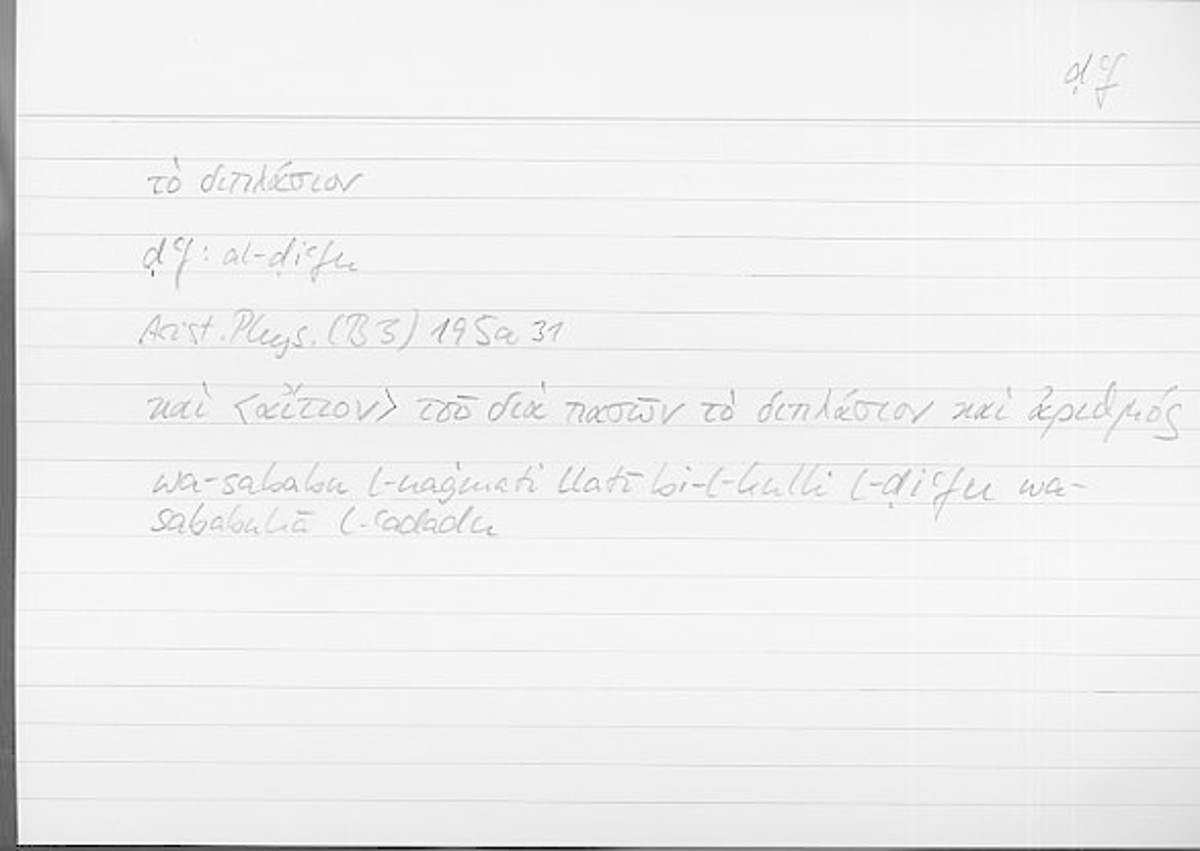 ḍʿf
τὸ διπλάσιον
ḍʿf: al-ḍiʿfu
Arist. Phys. (B 3) 195a 31
καὶ <αἴτιον> τοῦ διὰ πασῶν τὸ διπλάσιον καὶ ἀριθμός
wa-sababu l-naġmati llatī bi-l-kulli l-ḍiʿfu wa-
sababuhā l-ʿadadu